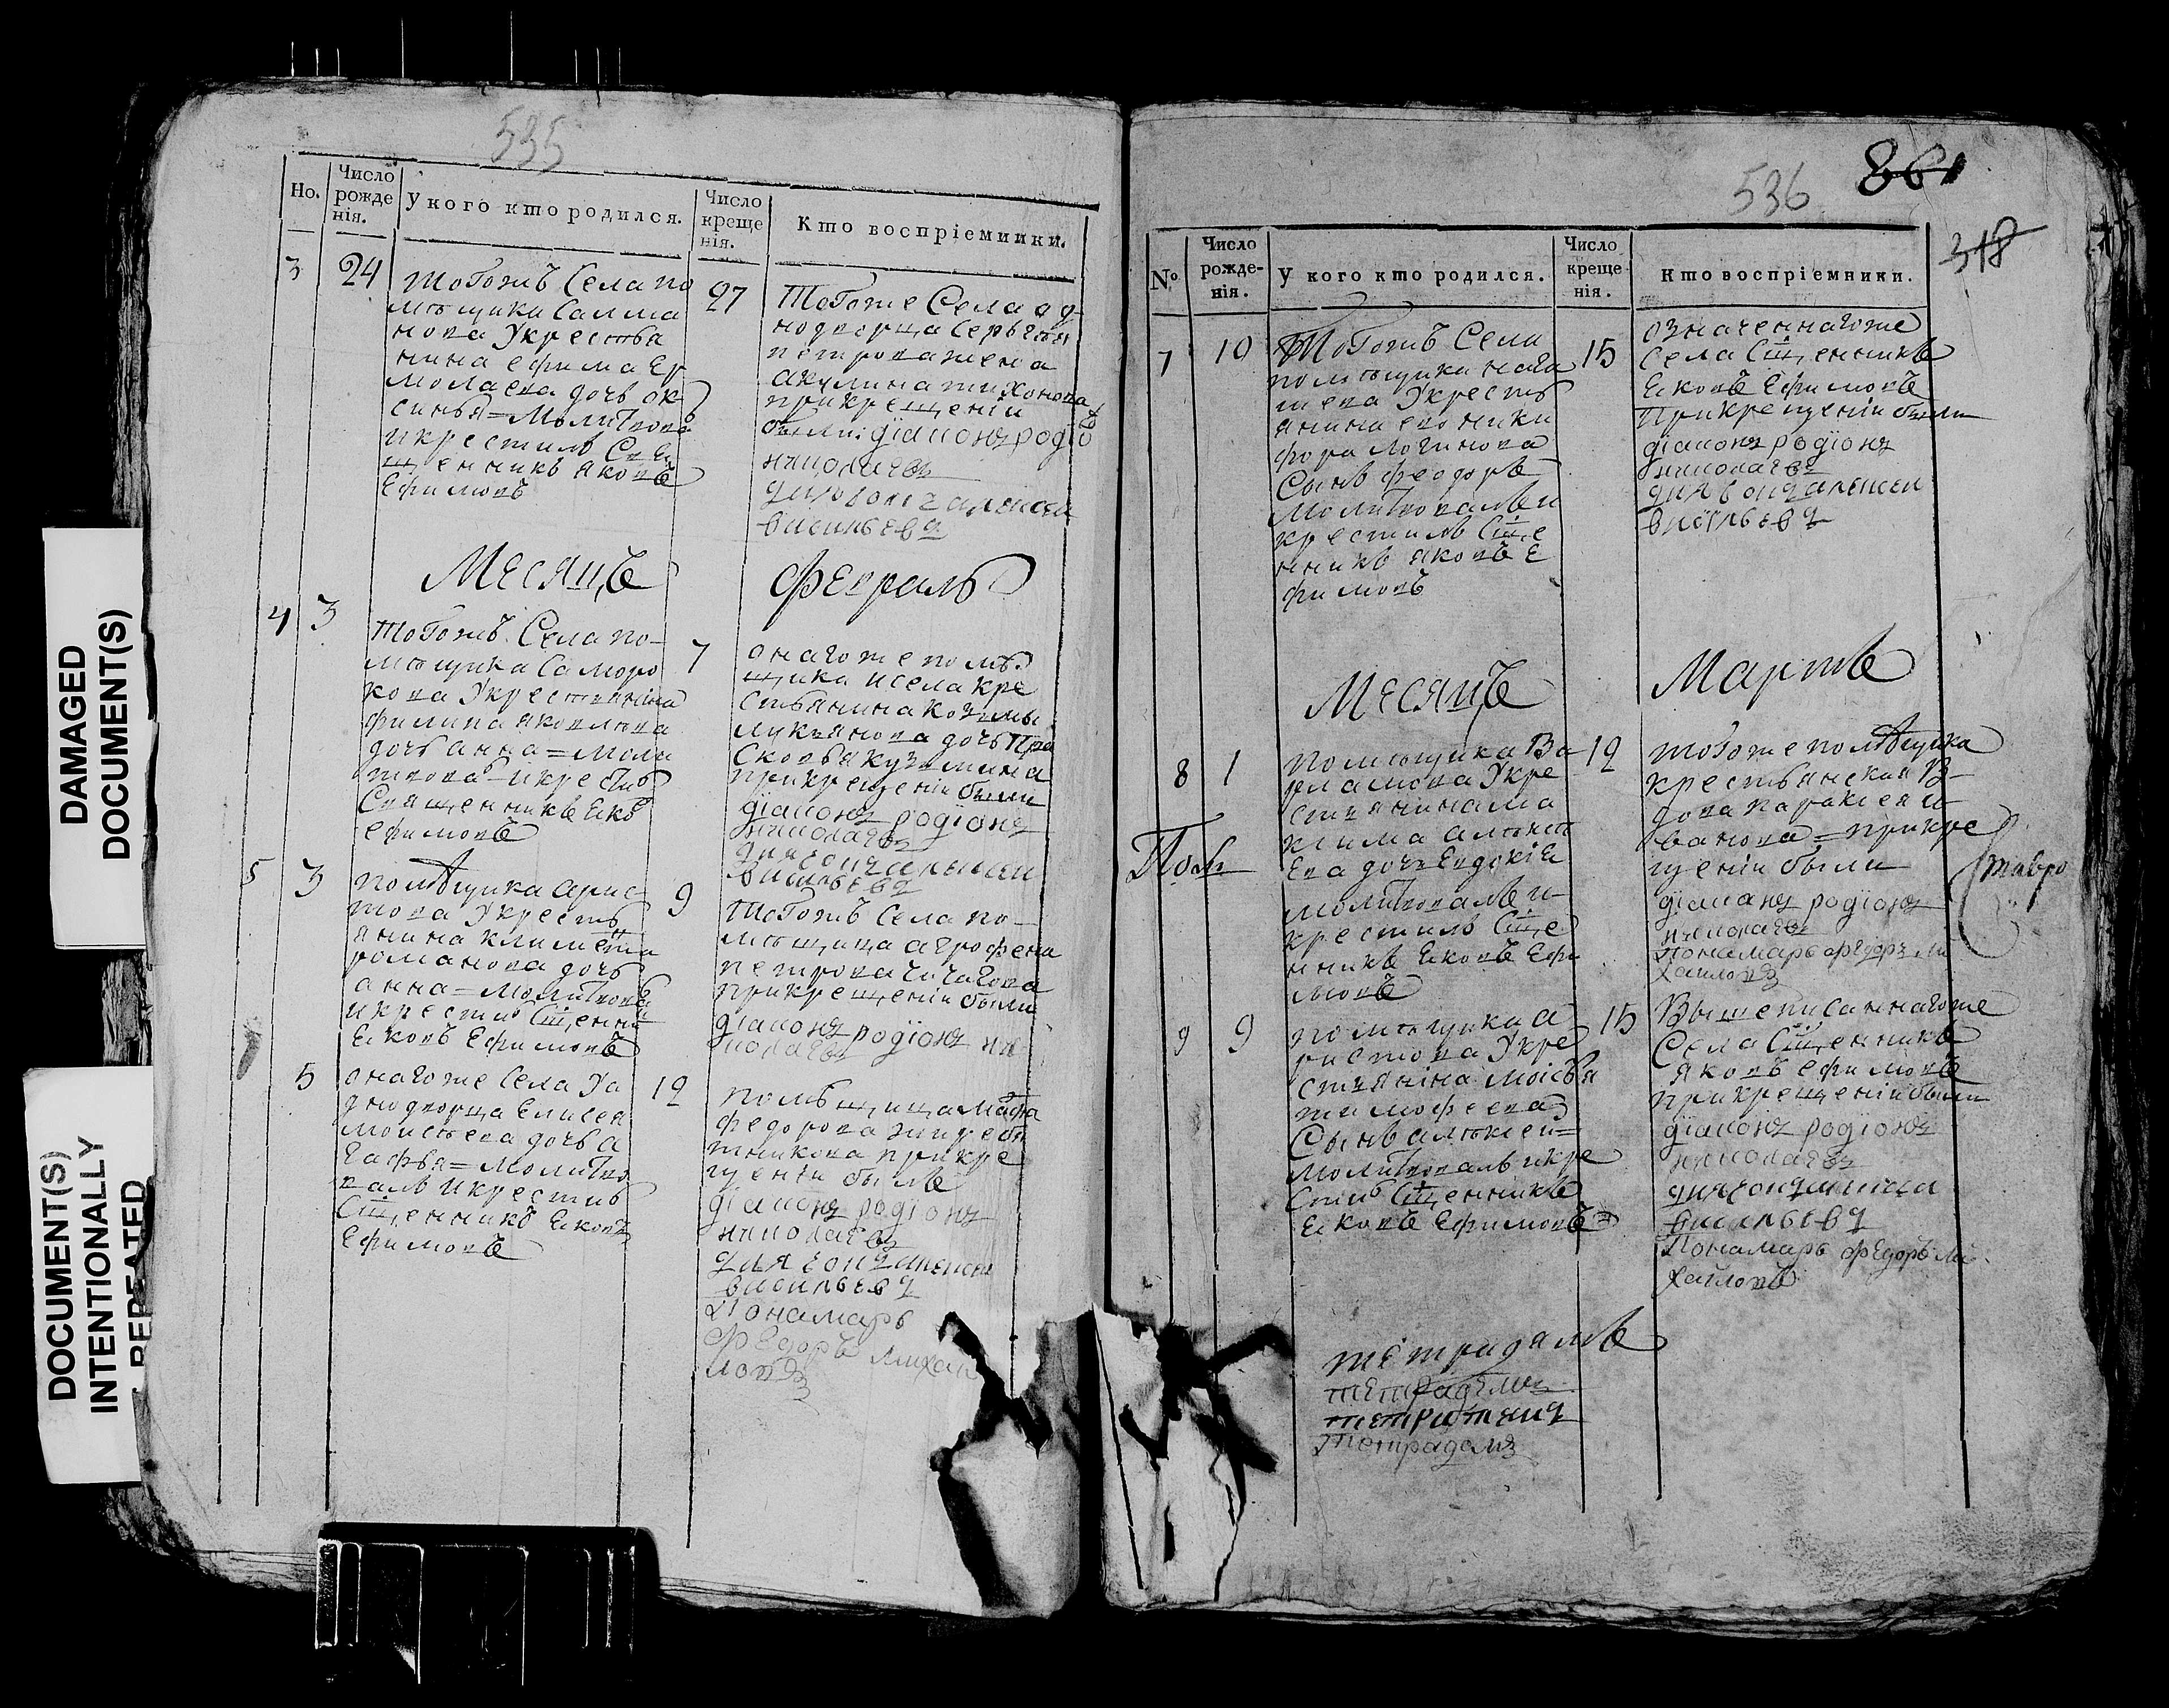 DAMAGED
DOCUMENT(S)
DOCUMENT(S)
INTENTIONALLY
REPEATED
535
Но.
Число рожденія.
У кого кто родился.
Число крещенія.
Кто воспріемники.
3
24
Тогожъ Села по
мѣщика Салма
нова Укрестья
нина ефима Ер
молаева дочь ок
синья = Молитвова
икрестилъ Свя
щенникъ яковъ
Ефимовъ
27
Тогоже Села од
нодворца Сергѣя
петрова жена
акулина тихонова
прикрещеніи
были: діаконъ родіо
николаевъ
васильевъ
Месяцъ
Февраль
4
3
Тогожъ Села по-
мѣщика Саморо
кова Укрестьянина
филипа яковлева
дочь анна = моли
твова икрестил
Священникъ Яко
ефимовъ
7
онагоже помѣ
щика исела кре
стьянина козмы
лукьянова дочь Пра
сковья кузмина
прикрещеніи были
діаконъ родіонъ
николаевъ
васильевъ
5
3
помѣщика арис
това Укресть
янина климента
романова дочь
анна = молитвовалъ
икрестил Сщ҃енни
Яковъ Ефимовъ
9
Тогожъ Села по-
мѣщица агрофена
петрова чичагова
прикрещеніи были
діаконъ родіонъ ни
колаевъ
5
онагоже Села Уо
днодворца Елисея
моисѣева дочь а
гафья = Молитво
валъ икрестил
Сщ҃енникъ Яковъ
Ефимовъ
12
помѣщица Марфа
федорова
прикре
щеніи былъ
діаконъ родіонъ
николаевъ
васильевъ
Понамарь
Федоръ михаи
ловъ
536
861
318
№.
Число рожде-нія.
У кого кто родился.
Число крещенія.
Кто воспріемники.
7
10
Тогожъ Села
помѣщика нага
ева Укресть
янина никифора логинова
Сынъ феодоръ
Молитвовалъ и
крестилъ Сщ҃е
нникъ яковъ Е
фимовъ
15
означеннагоже
Села Сщ҃енникъ
Яковъ Ефимовъ
Прикрещеніи были
діаконъ родіонъ
николаевъ
васильевъ
Месяцъ
Мартъ
8
1
помѣщика Ва
рламова Укре
стьянина ма
ксима алѣксѣ
ева дочь Евдокія
молитвовалъ и
крестилъ Сщ҃е
нникъ Яковъ Ефи
мовъ
12
тогоже помѣщика
крестьянская В-
дова параксева и
ванова = прикре
щеніи были
діаконъ родіонъ
николаевъ
Понамарь Федоръ ми
хаиловъ
9
9
помѣщика а
ристова Укре
стьяніна моісѣя
тимофеева
Сынъ алѣксеи =
молитвовалъ икре
стил Сщ҃енникъ
Яковъ Ефимовъ
15
Вышеписаннагоже
Села Сщ҃енникъ
яковъ ефимовъ
прикрещеніи были
діаконъ родіонъ
николаевъ
васильевъ
Понамарь Федоръ ми
хаиловъ
тетрадямъ